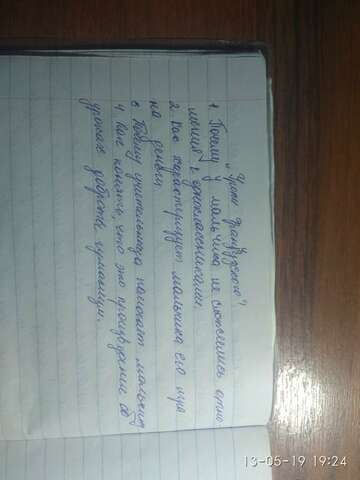 "Уроки французского"
1. Почему у мальчика не сложились отно
шения с одноклассниками
2. Как характеризует мальчика его игра
на деньги
3. Почему учительница помогает мальчику
4. Как понять, что это произведение об
уроках доброты, гуманизм.
13-05-19 19:24